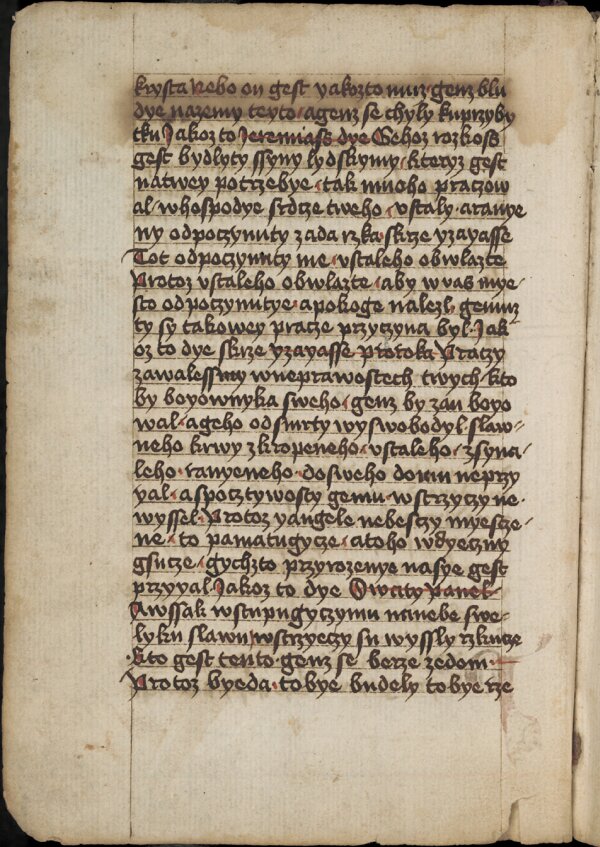 krysta Nebo on gest yakozto muz · genz blu
dye nazemy teyto · agenz se chyly kuprzyby
tku Jakoz to Jeremiass dye Gehoz rozkoss
gest bydlyty ssyny lydskymy · kteryz gest
natwey potrzebye · tak mnoho praczow
al · whospodye srdcze tweho · vstaly · aranye
ny odpoczynuty zada rzka skrze yzayasse
Tot odpoczynuty me · vstaleho obwlazte
Protoz vstaleho obwlazte · aby wvas mye-
sto odpoczynutye · apokoge nalezl · gemuz
ty sy takowey pracze przyczyna byl · Jak-
oz to dye skrze yzayasse proroka Praczy
zawalessmy wneprawostech twych · kto
by boyownyka sweho · genz by zan boyo
wal · ageho odsmrty wyswobodyl · slaw-
neho krwy zkropeneho · vstaleho · zsyna-
leho · ranyeneho · dosweho domu neprzy
yal · aspocztywosty gemu · wstrzyczy ne-
wyssel · Protoz yangele nebesczy myescze-
ne · to pamatugycze · atoho wdyeczny
gsucze · gychzto przyrozenye nasye gest
przyyal · Jakoz to dye Owcity panel
Awssak wstupugyczymu nanebe swe-
lyku slawu wstrzyeczy su wyssly rzkucze
Kto gest tento · genz se berze zedom ·
Protoz byeda · tobye budely tobye rze